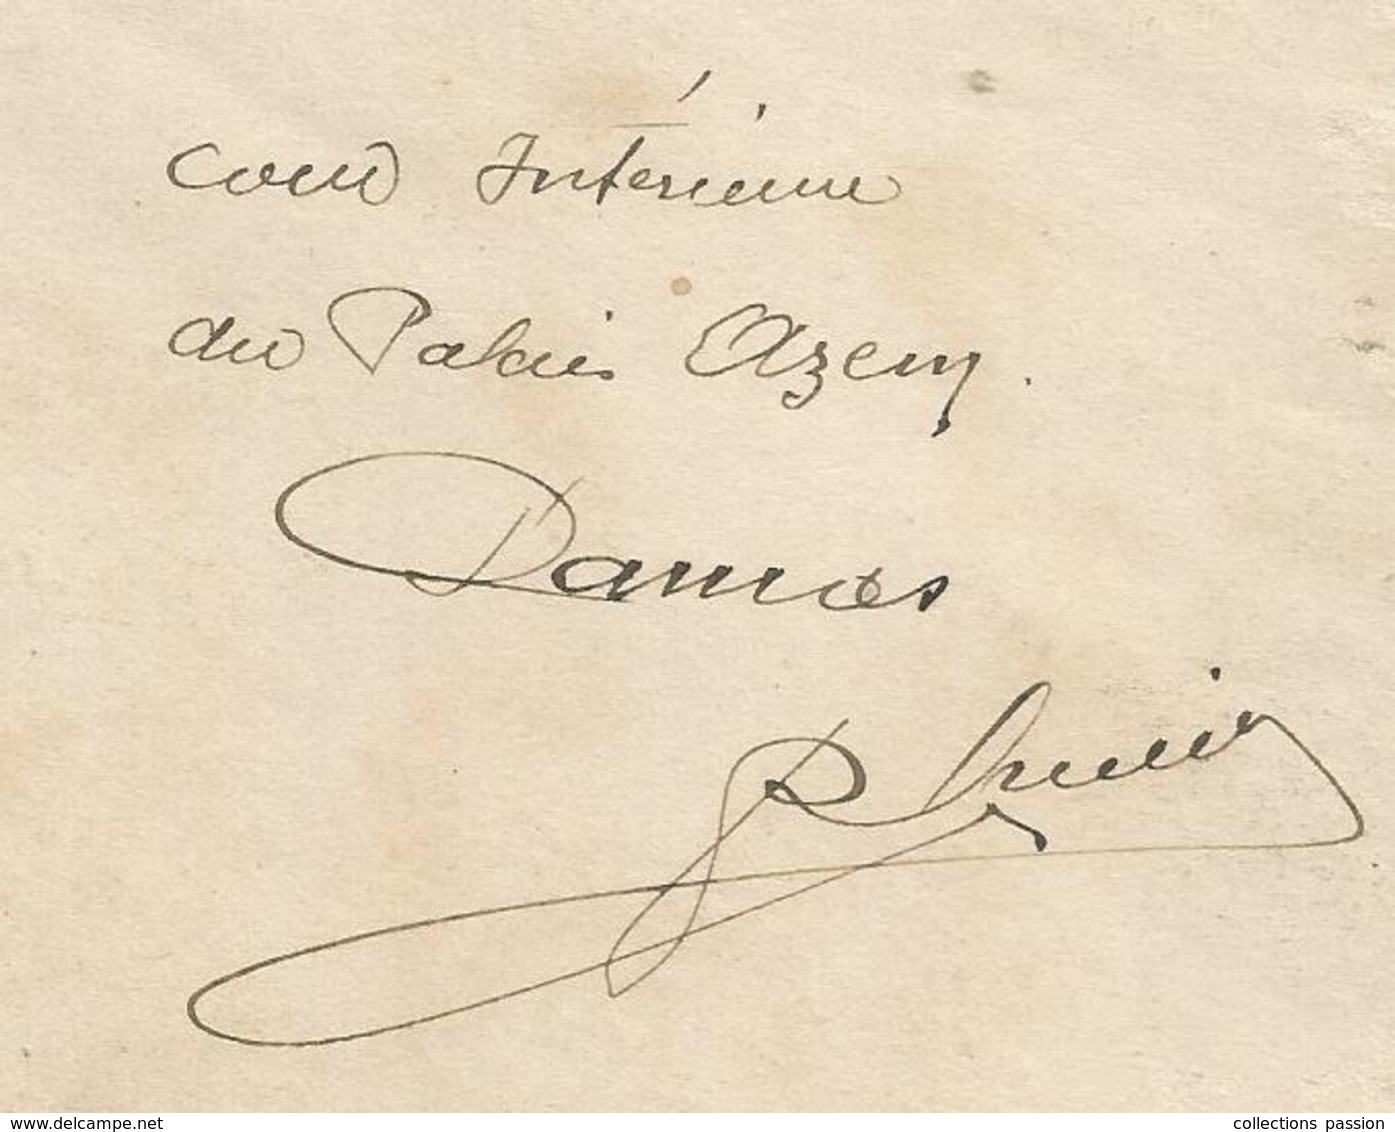 Cour Intérieure
du Palais Azem.
Damas
www.delcampe.net
collections passion